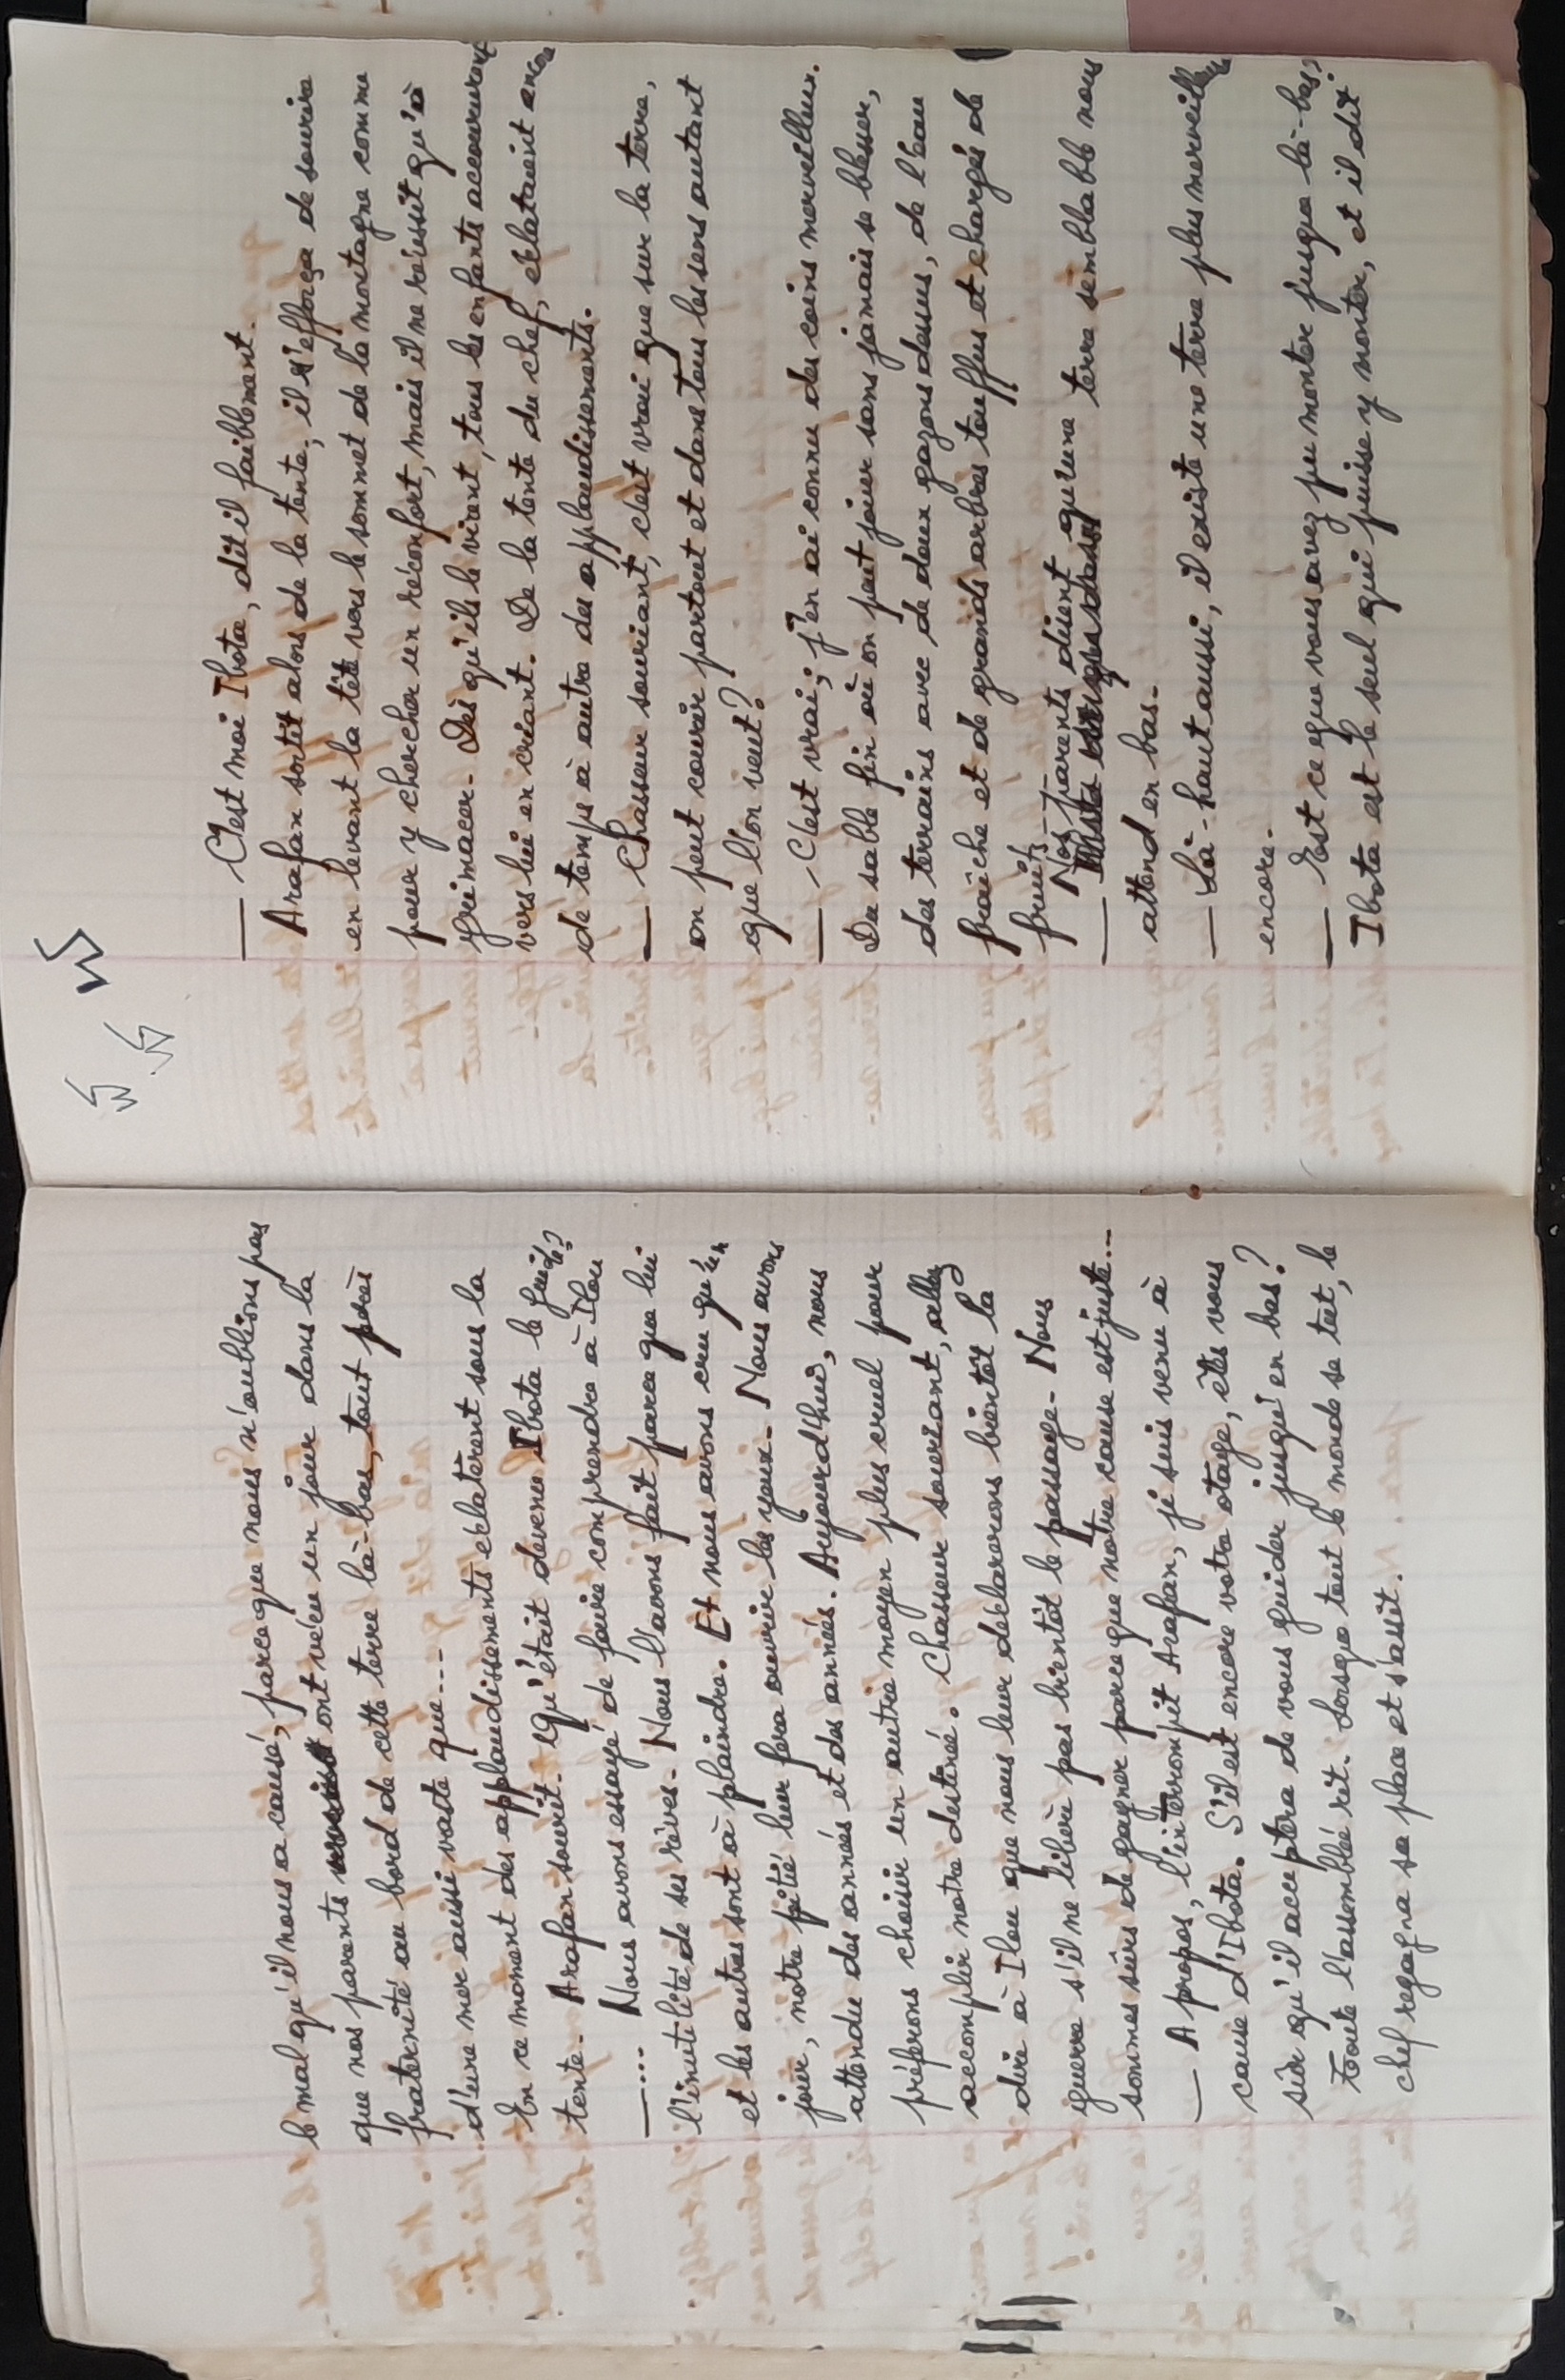 le mal qu'il nous a causé, parce que nous n'oublions pas
que nos parents ont vécu un jour dans la
fraternité au bord de cette terre là-bas, tout près
d'une mer aussi vaste que...
En ce moment des applaudissements eclatèrent sous la
tente. Arafan sourit. Qu'était devenu Ibota le guide?
—... Nous avons essayé de faire comprendre à Ilou
l'inutilité de ses rêves. Nous l'avons fait parce que lui
et les autres sont à plaindre. Et nous avons cru qu'un
jour, notre pitié leur fera ouvrir les yeux. Nous avons
attendu des années et des années. Aujourd'hui, nous
préferons choisir un autre moyen plus cruel pour
accomplir notre destinée. Chasseur souriant, allez
dire à Ilou que nous leur déclarerons bientôt la
guerre s'il ne libère pas bientôt le passage. Nous
sommes sûrs de gagner parce que notre cause est juste...
— A propos, l'interrompit Arafan, je suis venu à
cause d'Ibota. S'il est encore votre otage, êtes vous
sûr qu'il acceptera de vous guider jusqu'en bas?
Toute l'assemblée rit. Lorsque tout le monde se tut, le
chef regagna sa place et s'assit.
— C'est moi Ibota, dit il faiblement.
Arafan sortit alors de la tente; il s'efforça de sourire
en levant la tête vers le sommet de la montagne comme
pour y chercher un réconfort, mais il ne réussit qu'à
grimacer. Dès qu'ils le virent, tous les enfants accoururent
vers lui en criant. De la tente du chef, eclataient encore
de temps à autre des applaudissements.
— Chasseur souriant, c'est vrai que sur la terre,
on peut courir partout et dans tous les sens autant
que l'on veut?
— C'est vrai; j'en ai connu des coins merveilleux.
Du sable fin où on peut jouer sans jamais se blesser,
des terrains avec de doux gazons dessus, de l'eau
fraîche et de grands arbres touffus et chargés de
fruits.
— Nos parents disent qu'une terre semblable nous
attend en bas.
— Là-haut aussi, il existe une terre plus merveilleuse
encore.
— Est ce que vous avez pu monter jusque là-bas?
Ibota est le seul qui puisse y monter, et il dit